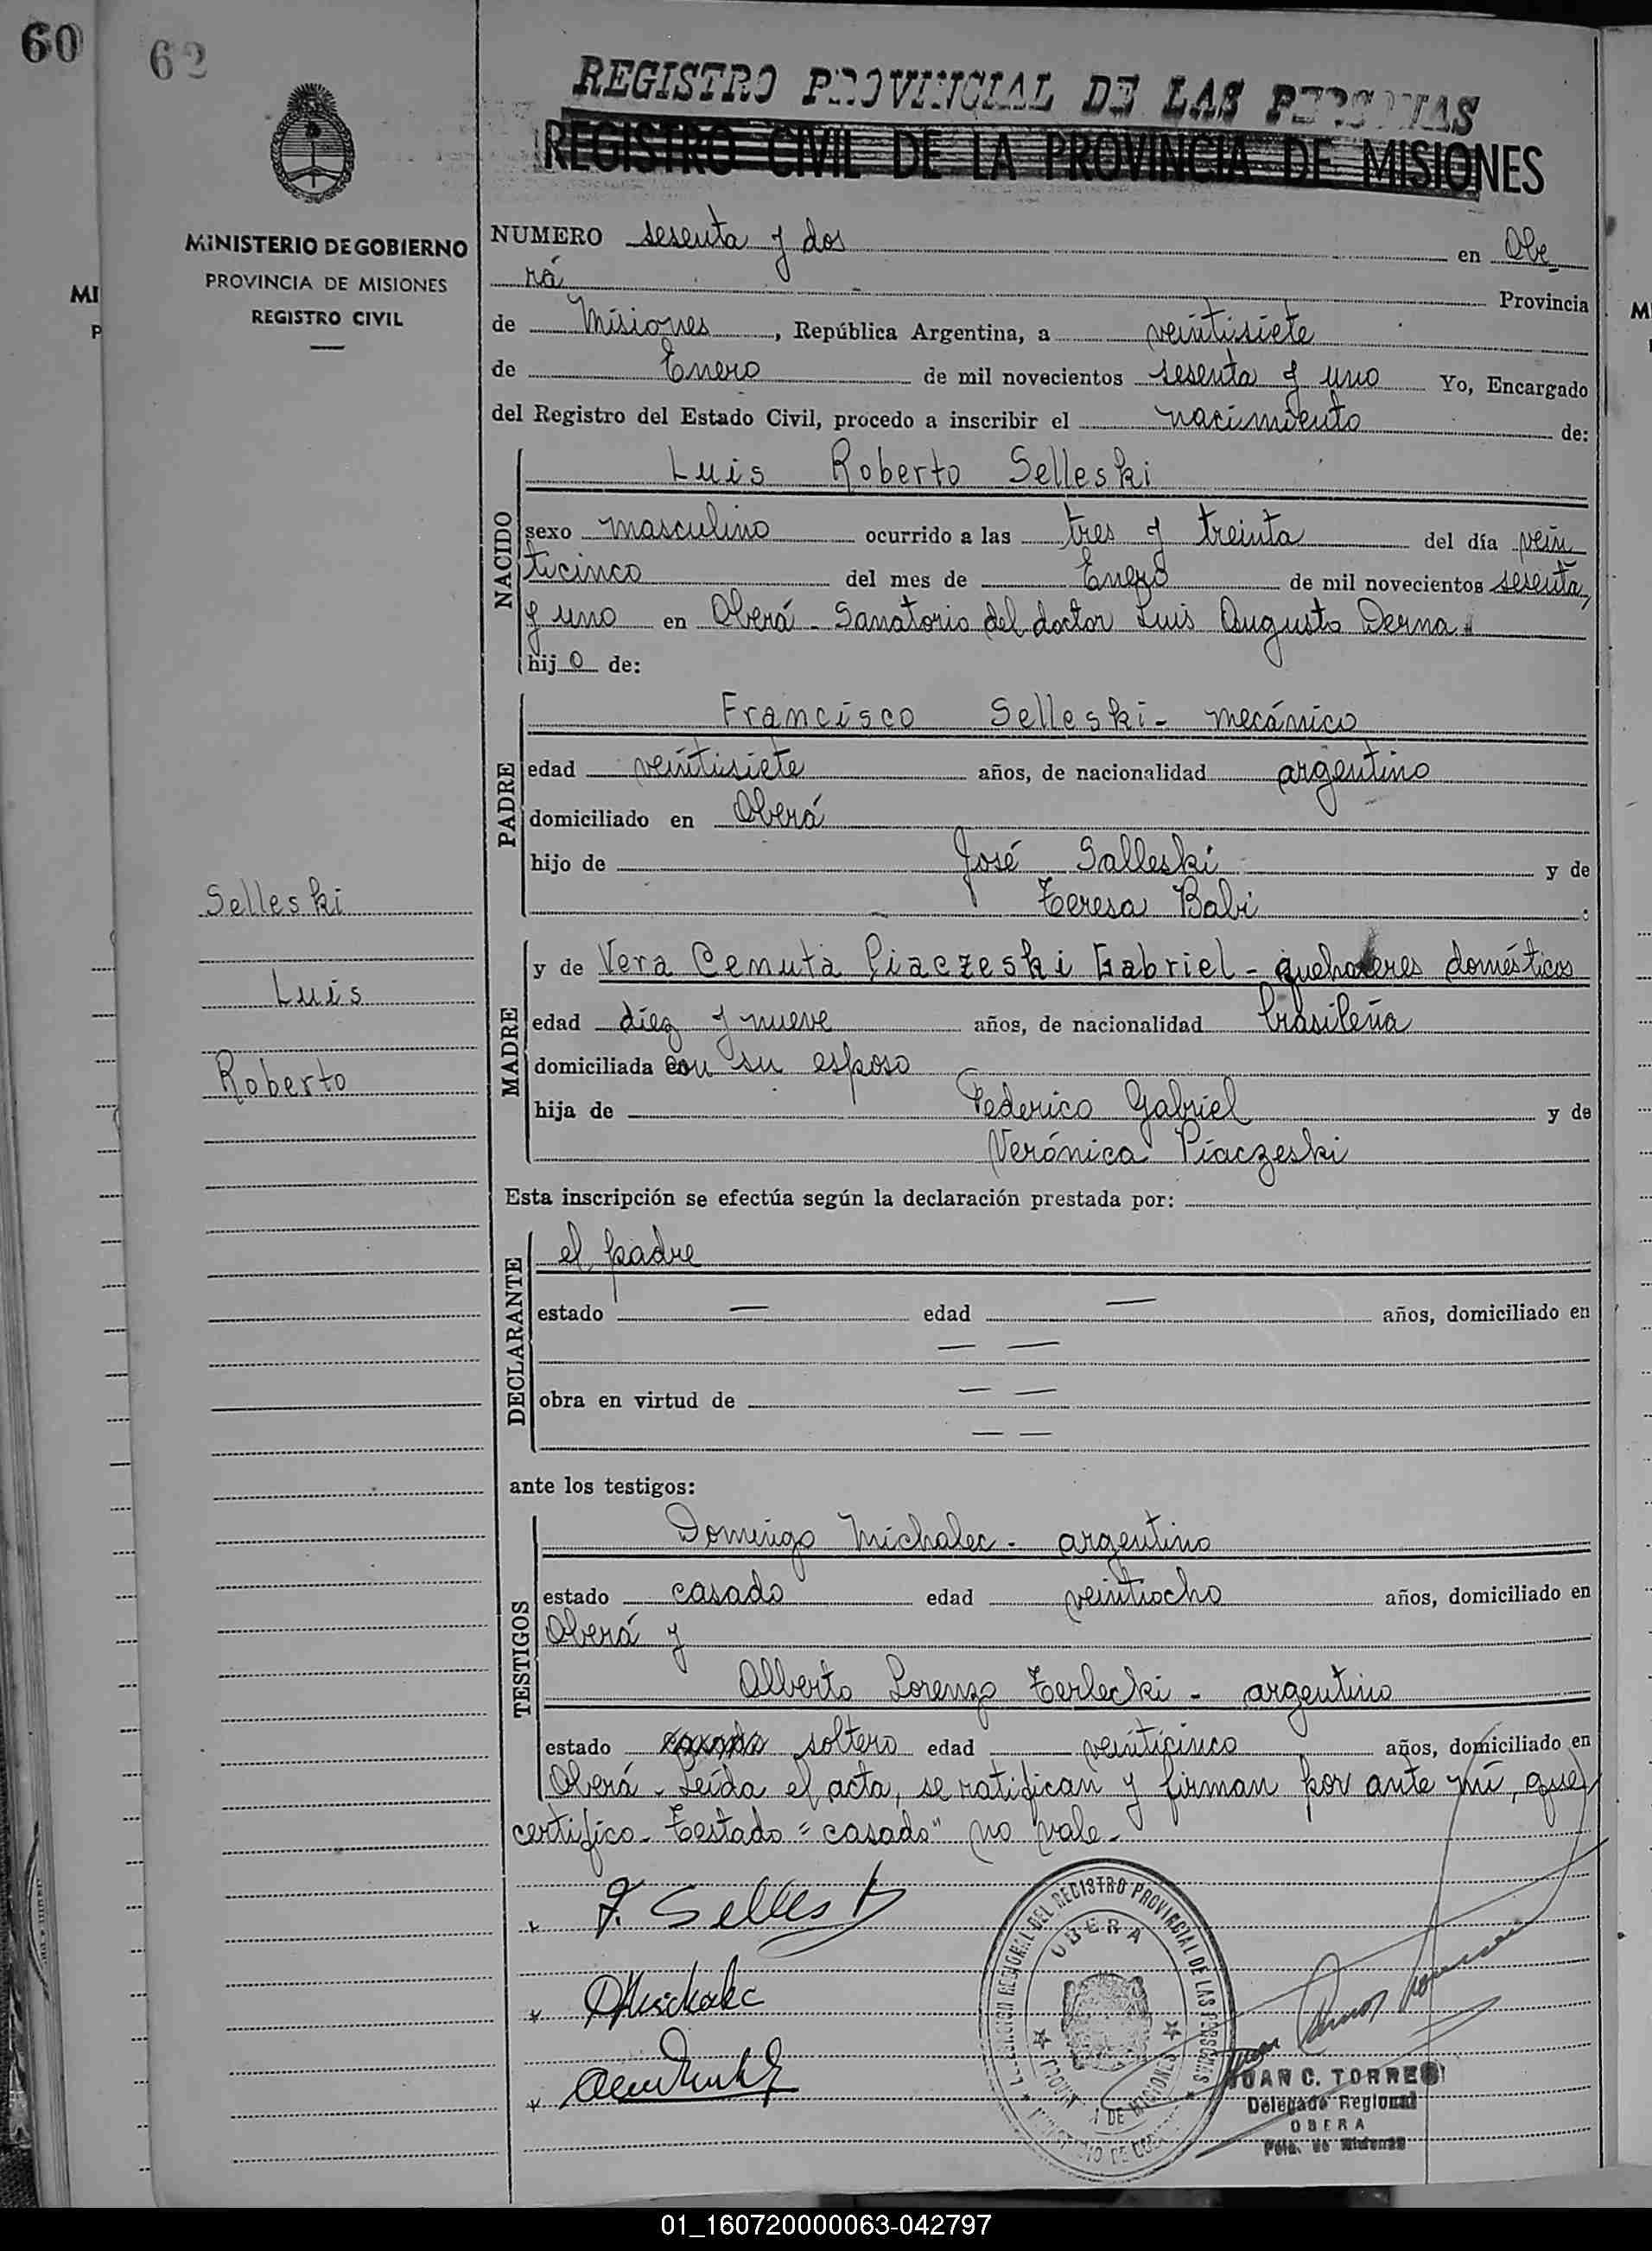 60
62
REGISTRO PROVINCIAL DE LAS PERSONAS
REGISTRO CIVIL DE LA PROVINCIA DE MISIONES
MINISTERIO DE GOBIERNO
PROVINCIA DE MISIONES
REGISTRO CIVIL
NUMERO sesenta y dos en Obe
rá Provincia
de Misiones, República Argentina, a veintisiete
de Enero de mil novecientos sesenta y uno Yo, Encargado
del Registro del Estado Civil, procedo a inscribir el nacimiento de:
NACIDO
Luis Roberto Selleski
sexo masculino ocurrido a las tres y treinta del día vein
ticinco del mes de Enero de mil novecientos sesenta
y uno en Oberá - Sanatorio del doctor Luis Augusto Derna
hijo de:
PADRE
Francisco Selleski - mecánico
edad veintisiete años, de nacionalidad argentino
domiciliado en Oberá
hijo de José Salleski y de
Teresa Babi
MADRE
y de Vera Cenuta Piaczeski Gabriel - quehaceres domésticos
edad diez y nueve años, de nacionalidad brasileña
domiciliada con su esposo
hija de Federico Gabriel y de
Verónica Piaczeski
Selleski
Luis
Roberto
Esta inscripción se efectúa según la declaración prestada por:
DECLARANTE
el padre
estado — edad — años, domiciliado en
— —
obra en virtud de — —
— —
ante los testigos:
TESTIGOS
Domingo Michalec - argentino
estado casado edad veintiocho años, domiciliado en
Oberá y
Alberto Lorenzo Terlecki - argentino
estado casado soltero edad veinticinco años, domiciliado en
Oberá - Leída el acta, se ratifican y firman por ante mí, que
certifico - Testado = casado" no vale -
F. Selleski
DMichalec
DEL REGISTRO PROVINCIAL DE LAS PERSONAS
OBERA
JUAN C. TORRES
Delegado Regional
OBERA
Pcia. de Misiones
01_160720000063-042797